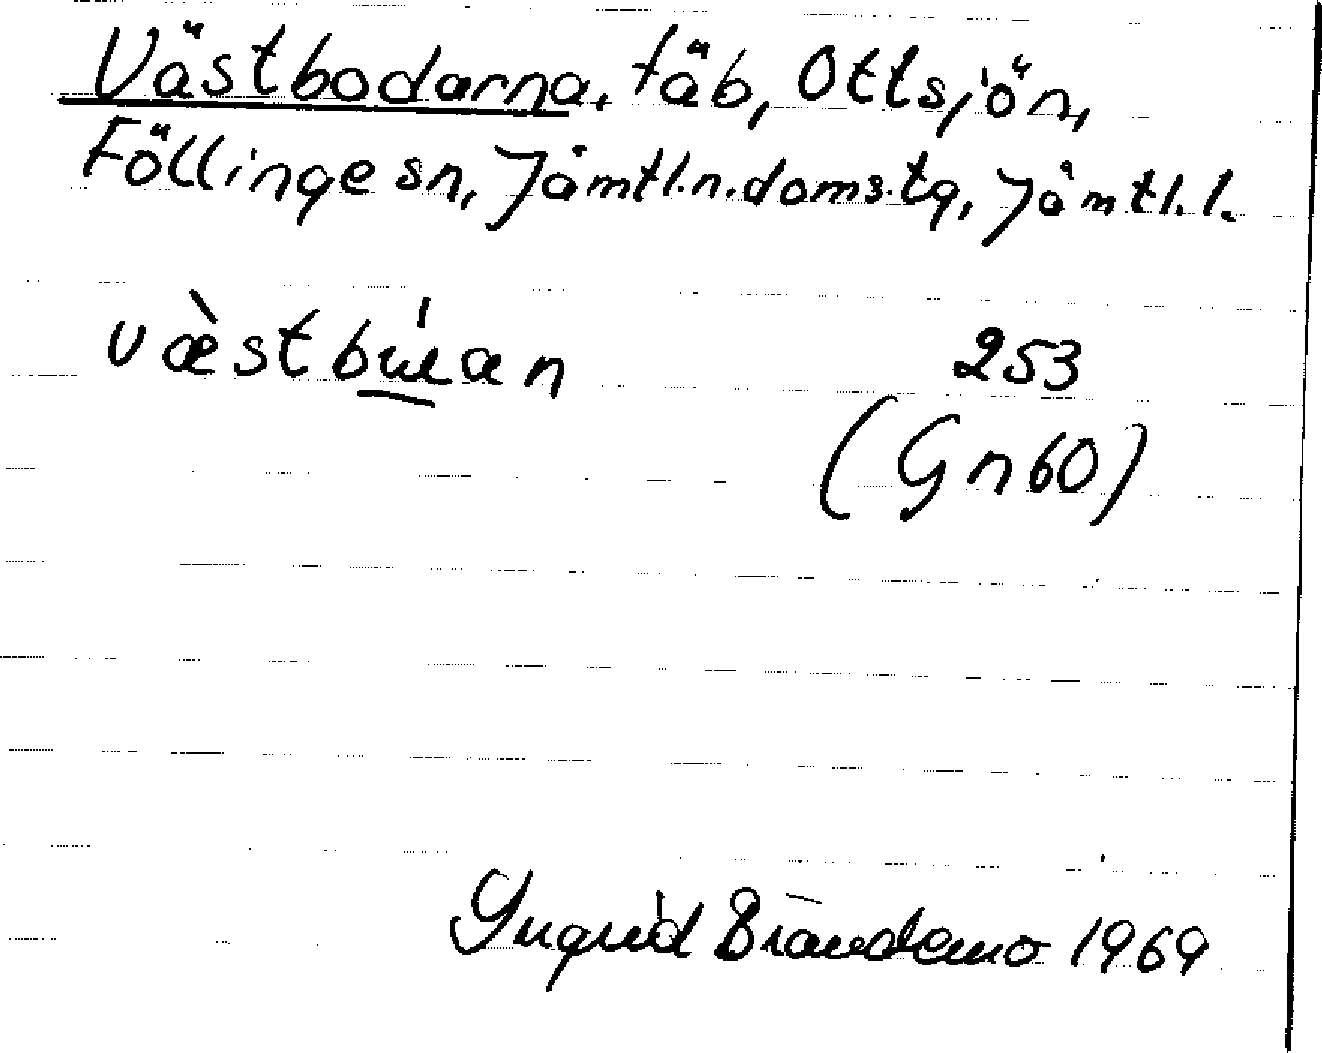 Västbodarna, fäb, Ottsjön,
Föllinge sn, Jämtl.n.doms.tg, Jämtl.l.
253
(Gn60)
Ingrid Brändemo 1969